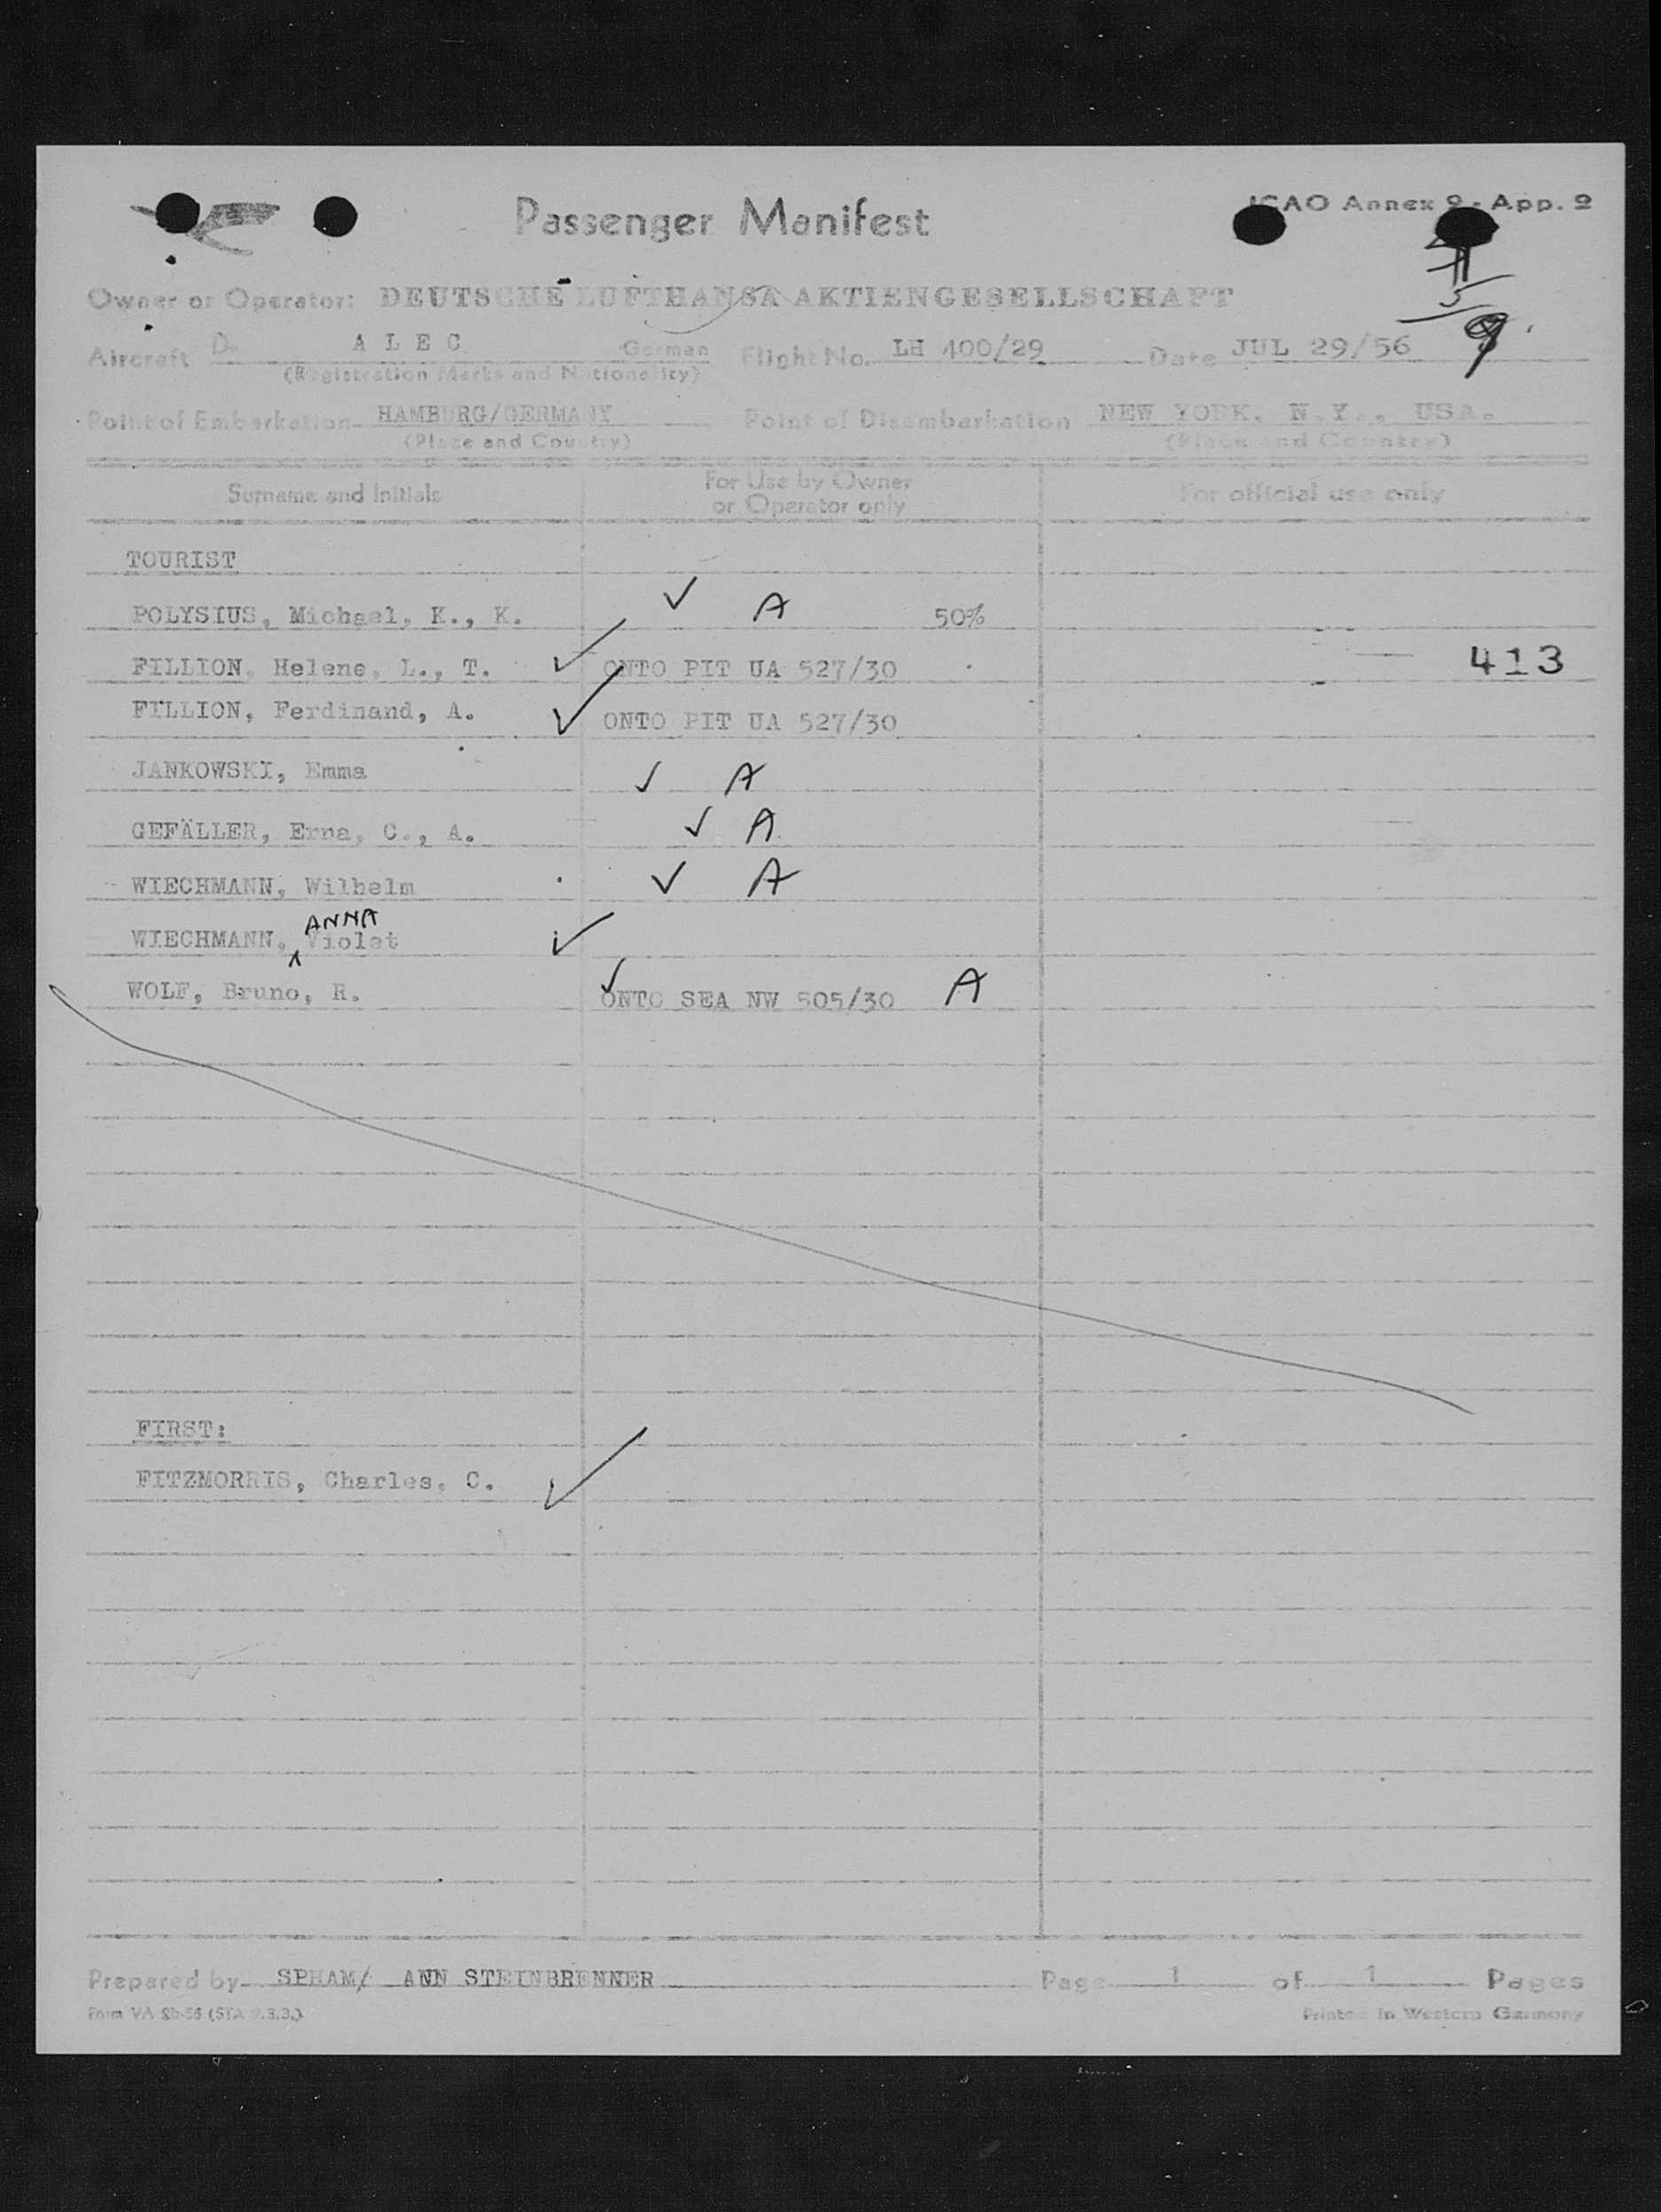 Passenger Manifest
ICAO Annex 9 - App. 2
Owner or Operator: DEUTSCHE LUFTHANSA AKTIENGESELLSCHAFT
5
9
Aircraft D- A L E C German Flight No. LH 400/29 Date JUL 29/56
(Registration Marks and Nationality)
Point of Embarkation HAMBURG/GERMANY Point of Disembarkation NEW YORK, N.Y., USA.
(Place and Country) (Place and Country)
Surname and Initials For Use by Owner or Operator only For official use only
TOURIST
POLYSIUS, Michael, K., K. ✓ A 50%
FILLION, Helene, L., T. ✓ ONTO PIT UA 527/30 413
FILLION, Ferdinand, A. ✓ ONTO PIT UA 527/30
JANKOWSKI, Emma ✓ A
GEFÄLLER, Erna, C., A. ✓ A
WIECHMANN, Wilhelm ✓ A
ANNA
WIECHMANN, Violet ✓
WOLF, Bruno, R. ✓ ONTO SEA NW 505/30 A
FIRST:
FITZMORRIS, Charles, C. ✓
Prepared by SPHAM/ ANN STEINBRENNER Page 1 of 1 Pages
Form VA Printed in Western Germany